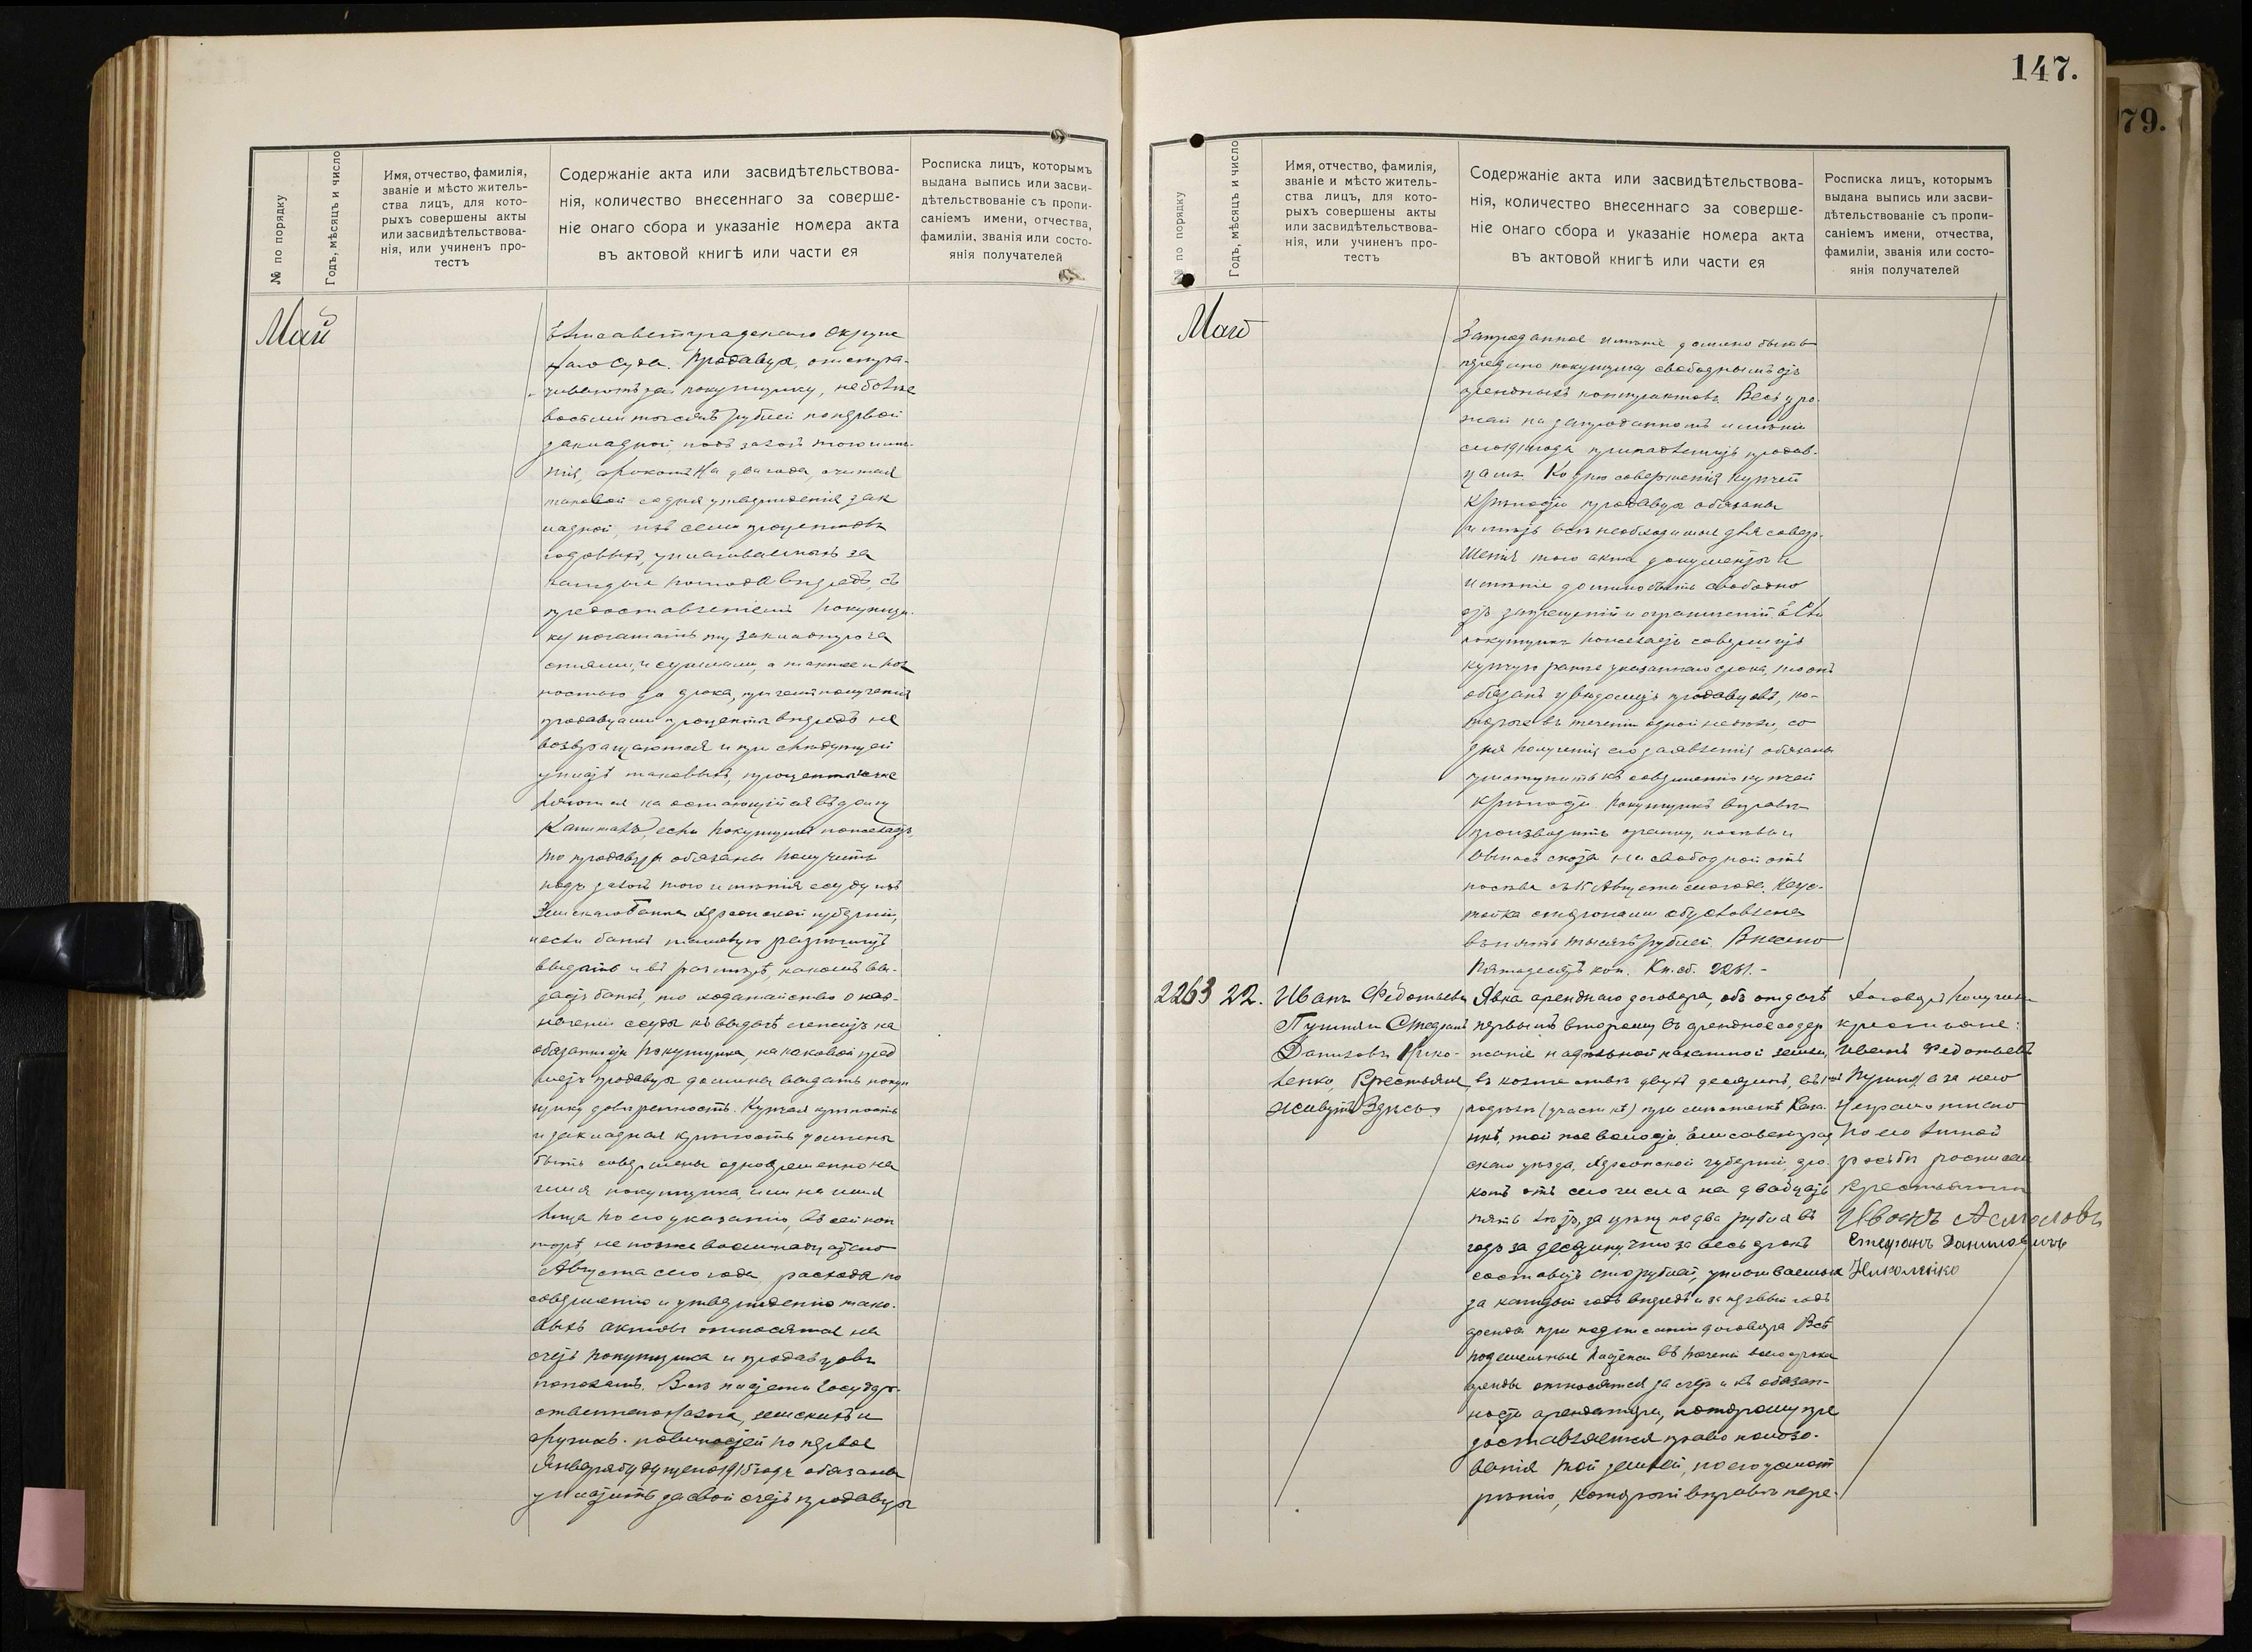 147.
79.
№ по порядку
Годъ, мѣсяцъ и число
Имя, отчество, фамилія,
званіе и мѣсто житель-
ства лицъ, для кото-
рыхъ совершены акты
или засвидѣтельствова-
нія, или учиненъ про-
тестъ
Содержаніе акта или засвидѣтельствова-
нія, количество внесеннаго за соверше-
ніе онаго сбора и указаніе номера акта
въ актовой книгѣ или части ея
Росписка лицъ, которымъ
выдана выпись или засви-
дѣтельствованіе съ пропи-
саніемъ имени, отчества,
фамиліи, званія или состо-
янія получателей
Май
Елисаветградскаго Окруж
наго Суда. Продавцы отстра-
чиваютъ покупщику, не болѣе
восьми тысячъ рублей по первой
закладной, подъ залогъ того имѣ-
нія, срокомъ на два года, считая
таковой со дня утвержденія зак
ладной, изъ семи процентовъ
годовыхъ, уплачиваемыхъ за
каждые полгода впередъ, съ
предоставленіемъ покупщи-
ку погашать ту закладную ча
стями, и суммами, а также и пол
ностью до срока, при чемъ полученные
продавцами проценты впередъ не
возвращаются и при слѣдующей
уплатѣ таковыхъ, проценты
на остающійся въ долгу
капиталъ, если покупщикъ пожелаетъ,
то продавцы обязаны получить
подъ залогъ того имѣнія ссуду изъ
Земскаго Банка Херсонской губерніи,
и если банкъ таковую разрѣшитъ
выдать и въ размѣрѣ, какомъ вы-
дастъ банкъ, то ходатайство о наз-
наченіи ссуды къ выдачѣ лежитъ на
обязанности покупщика, на каковой пред
метъ продавцы должны выдать покуп
щику довѣренность. Купчая крѣпость
и закладная крѣпость должны
быть совершены одновременно на
имя покупщика, или на имя
лица по его указанію, въ сей кон
торѣ, не позже восемнадцатаго
Августа сего года, расходы по
совершенію и утвержденію тако-
выхъ актовъ относятся на
счетъ покупщика и продавцовъ
пополамъ. Всѣ платежи Государ-
ственнаго налога, земскихъ и
другихъ повинностей по первое
Января будущаго 1915 года обязаны
уплатить за свой счетъ продавцы
№ по порядку
Годъ, мѣсяцъ и число
Имя, отчество, фамилія,
званіе и мѣсто житель-
ства лицъ, для кото-
рыхъ совершены акты
или засвидѣтельствова-
нія, или учиненъ про-
тестъ
Содержаніе акта или засвидѣтельствова-
нія, количество внесеннаго за соверше-
ніе онаго сбора и указаніе номера акта
въ актовой книгѣ или части ея
Росписка лицъ, которымъ
выдана выпись или засви-
дѣтельствованіе съ пропи-
саніемъ имени, отчества,
фамиліи, званія или состо-
янія получателей
Май
Запроданное имѣніе должно быть
передано покупщику свободнымъ отъ
арендныхъ контрактовъ. Весь уро-
жай на запроданномъ имѣніи
сего года принадлежитъ продав-
цамъ. Ко дню совершенія купчей
крѣпости продавцы обязаны
имѣть всѣ необходимые для совер-
шенія того акта документы и
имѣніе должно быть свободно
отъ запрещеній и ограниченій. Если
покупщикъ пожелаетъ совершить
купчую ранѣе указаннаго срока, то онъ
обязанъ увѣдомить продавцовъ, ко-
торые въ теченіи одной недѣли, со
дня полученія его заявленія обязаны
приступить къ совершенію купчей
крѣпости. Покупщикъ вправѣ
производить оранку, посѣвы и
выпасъ скота на свободной отъ
посѣва съ 15 Августа сего года. Неус-
тойка сторонами обусловлена
въ пять тысячъ рублей. Внесено
пятьдесятъ коп. Кн. сб. 2231.-
2263
22.
Иванъ Федотьевъ
Стефанъ
Даниловъ Нико-
ленко, Крестьяне,
живутъ здѣсь.
Явка аренднаго договора, объ отдачѣ
первымъ второму въ арендное содер
жаніе надѣльной пахатной земли,
въ количествѣ двухъ десятинъ, въ
(участкѣ) при
той же волости, Елисаветград
скаго уѣзда, Херсонской губерніи, сро-
комъ отъ сего числа на двадцать
пять лѣтъ, за цѣну по два рубля въ
годъ за десятину, что за весь срокъ
составитъ сто рублей, уплачиваемыя
за каждый годъ впередъ и за первый годъ
аренды при подписаніи договора. Всѣ
поземельные платежи въ теченіи всего срока
аренды относятся за счетъ и къ обязан-
ности арендатора, которому пре
доставляется право пользо-
ванія той землей, по его усмот
рѣнію, который вправѣ пере-
Договоръ получили
крестьяне:
Иванъ Федотьевъ
а за него
неграмотнаго
по его личной
просьбѣ росписался
крестьянинъ
Иванъ Асмоловъ
Стефанъ Даниловичъ
Николенко